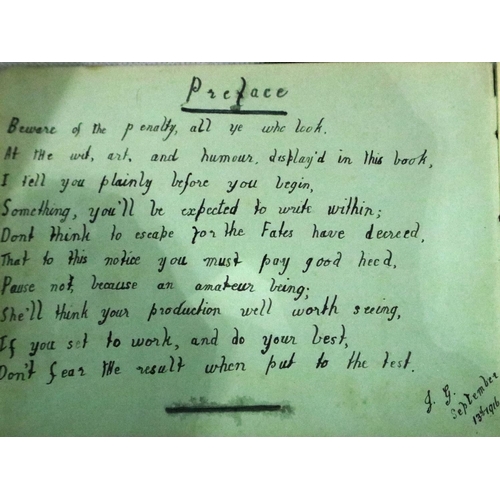 Preface
Beware of the penalty, all ye who look.
At the wit, art, and humour, display'd in this book,
I tell you plainly before you begin,
Something, you'll be expected to write within;
Dont think to escape for the Fates have decreed,
That to this notice you must pay good heed,
Pause not, because an amateur being;
She'll think your production well worth seeing,
If you set to work, and do your best,
Don't fear the result when put to the test.
J. G.
September
13th 1916